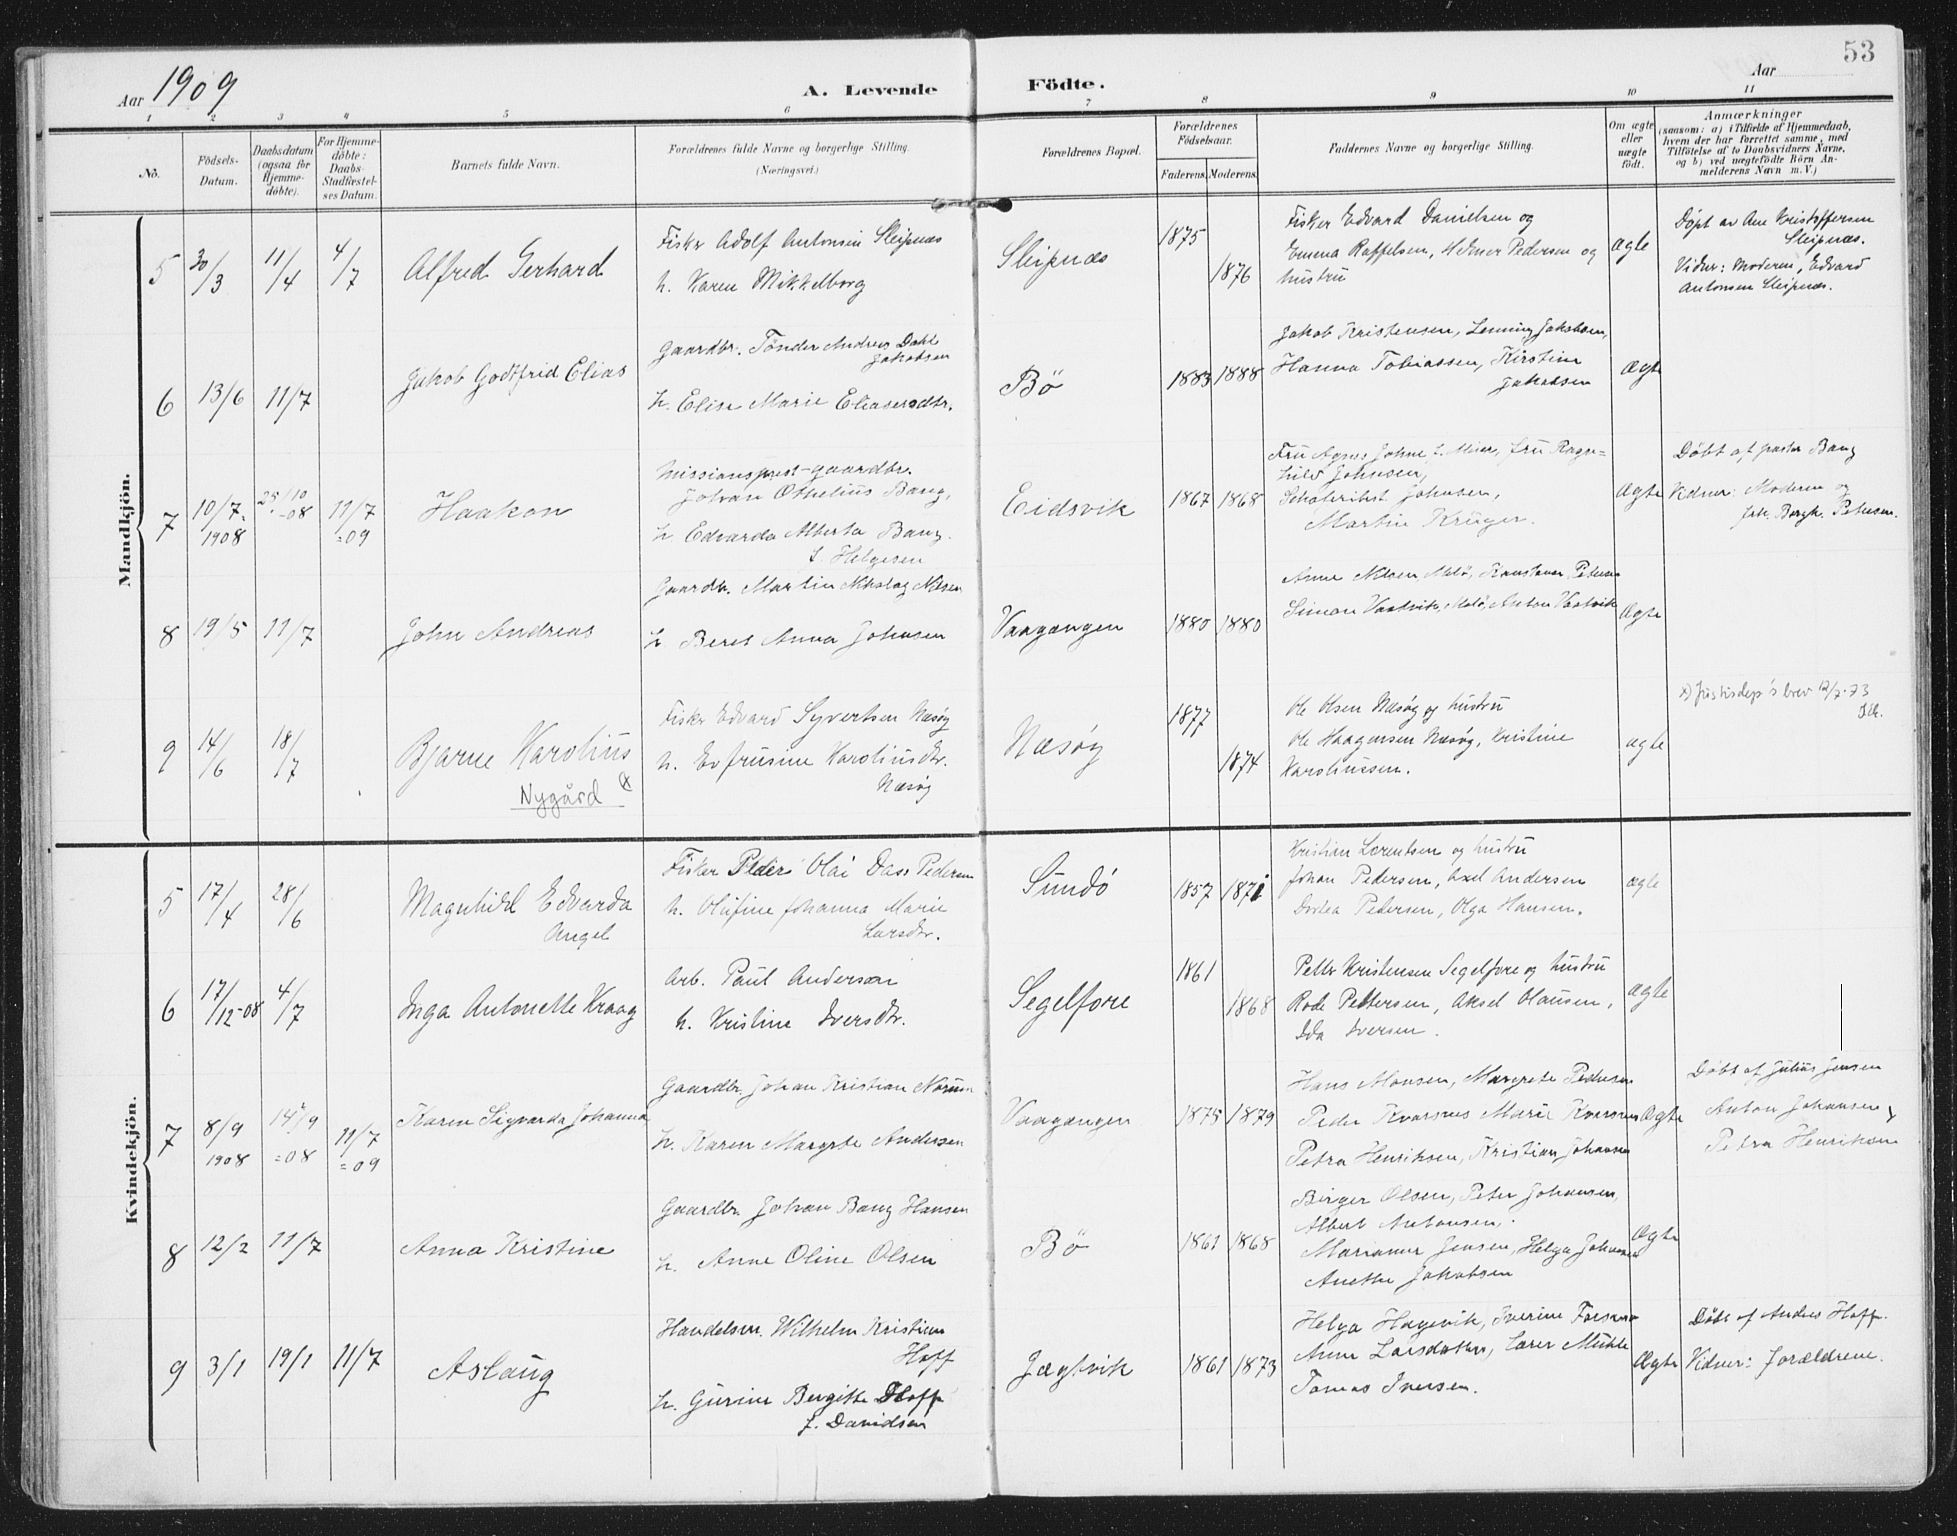 53
Aar 1909
A. Levende Födte.
Aar
1 2 3 4 5 6 7 8 9 10 11
No.
Födsels-
Datum.
Daabsdatum
(ogsaa for
Hjemme-
döbte).
For Hjemme-
döbte:
Daabs-
Stadfæstel-
ses Datum.
Barnets fulde Navn.
Forældrenes fulde Navne og borgerlige Stilling.
(Næringsvei.)
Forældrenes Bopæl.
Forældrenes
Födselsaar.
Faderens.
Moderens.
Faddernes Navne og borgerlige Stilling.
Om ægte
eller
uægte
födt.
Anmærkninger
(saasom: a) i Tilfælde af Hjemmedaab,
hvem der har forrettet samme, med
Tilföielse af to Daabsvidners Navne,
og b) ved uægtefödte Börn An-
melderens Navn m. V.)
Mandkjön.
5 30/3 11/4 4/7 Alfred Gerhard
Fisker Adolf Antonsen Sleipnæs
h. Karen Mikkelborg
Sleipnæs 1875 1876
Fisker Edvard Danielsen og
Emma Raffelsen, Pedersen og
hustru
ægte
Døpt av Ane Kristoffersen
Sleipnæs.
Vidner: Moderen, Edvard
Antonsen Sleipnæs.
6 13/6 11/7 Jakob Godtfrid Elias
Gaardbr. Tönder Andreas Dahl
Jakobsen
h. Elise Marie Eliasersdtr.
Bö 1883 1888
Jakob Kristensen, Jakobsen,
Hanna Tobiassen, Kirstine
Jakobsen
Ægte
7 10/7-1908 25/10-08 11/7=09 Haakon
Missionsprest-gaardbr.
Johan Othelius Bang,
h. Edvarda Alberta Bang
f. Helgesen
Eidsvik 1867 1868
Fru Agnes f. fru Ragn=
hild Johnsen,
Johnsen,
Martin Krüger.
Ægte
Döbt af pastor Bang
Vidner: Moderen og
Petersen.
8 19/5 11/7 John Andreas
Gaardbr. Martin Nikolay Nilsen
h. Beret Anna Johnsen
Vaagangen 1880 1880
Anne Nilsen Melö, Petersen
Simon Vaatvik, Melö, Anton Vaatvik
Ægte
9 14/6 18/7 Bjarne Karolius
Nygård x
Fisker Edvard Syvertsen Næsøy
h. Evfrusine Karoliusdtr.
Næsøy
Næsøy 1877 1874
Ole Olsen Næsøy og hustru
Ole Haagensen Næsøy, Kristine
Karoliussen.
ægte
x) Justisdep's brev 12/7-73
Kvindekjön.
5 17/4 28/6 Magnhild Edvarda
Angel
Fisker Peder Olai Dass Pedersen
h. Olufine Johanna Marie
Larsdtr.
Sundö 1857 1871
Kristian Lorentsen og hustru
Johan Pedersen, Axel Andersen
Dortea Pedersen, Olga Hansen.
ægte
6 17/12-08 4/7 Inga Antonette Kraag
Arb. Paul Andersen
h. Kristine Iversdtr.
Segelfore 1861 1868
Petter Kristensen Segelfore og hustru
Pettersen, Aksel Olausen,
Ida Iversen.
ægte
7 8/9 1908 14/9=08 11/7=09 Karen Sigvarda Johanna
Gaardbr. Johan Kristian Norum
h. Karen Margrete Andersen
Vaagangen 1875 1879
Hans Monsen, Margrete Pedersen
Peder Kvarsnes Marie Kvarsnes
Petra Henriksen, Kristian Johansen
Ægte
Döbt af Julius Jensen
Anton Johansen,
Petra Henriksen
8 12/2 11/7 Anna Kristine
Gaardbr. Johan Bang Hansen
h. Anne Oline Olsen
Bö 1861 1868
Birger Olsen, Peter Johansen,
Albert Antonsen,
Marianne Jensen, Helga Johansen
Anette Jakobsen
Ægte
9 3/1 19/1 11/7 Aslaug
Handelsm. Wilhelm Kristian
Hoff
h. Gurine Bergitte Hoff
f. Davidsen
Jægtvik 1861 1873
Helga Hagevik, Iverine
Anne Larsdatter, Lærer
Tomas Iversen.
Ægte
Döbt af Anders Hoff.
Vidner: Forældrene.